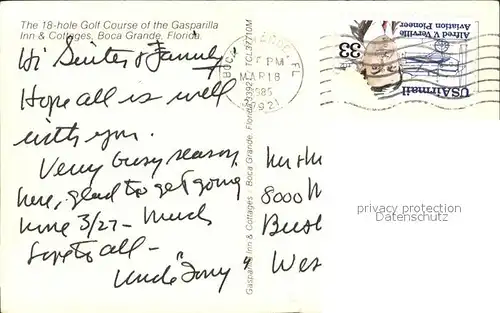 The 18-hole Golf Course of the Gasparilla
Inn & Cottages, Boca Grande, Florida.
Hi Sister & Family,
Hope all is well
with you.
Very busy season
here, glad to get going
home 3/27 - Much
Love to all -
Uncle Tony
Gasparilla Inn & Cottages - Boca Grande, Florida 33921 TCL37710M
BOCA GRANDE, FL
PM
MAR 18
1985
33921
USAirmail
Alfred V. Verville
Aviation Pioneer
33
8000
Wes
privacy protection
Datenschutz